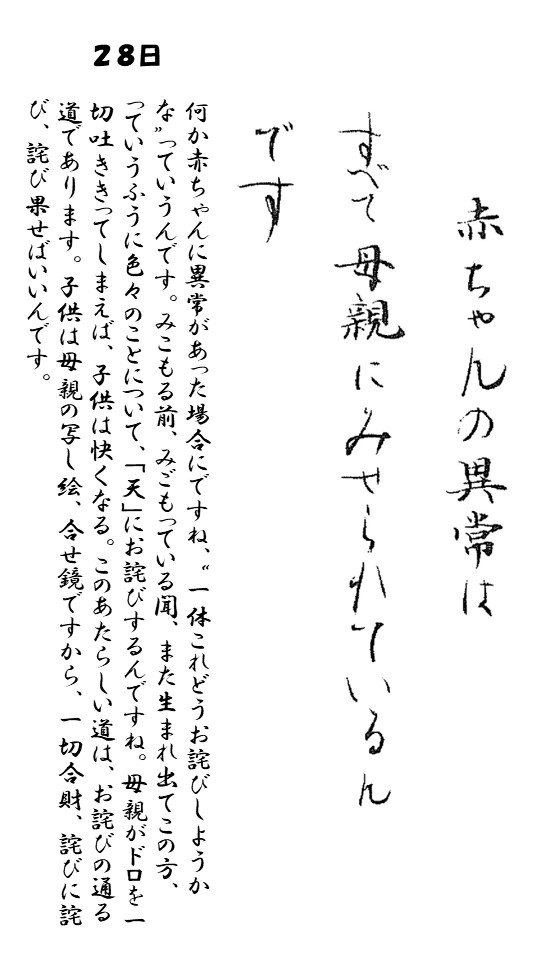 赤ちゃんの異常は
すべて母親にみせられているん
です
28日
何か赤ちゃんに異常があった場合にですね、〝一体これどうお詫びしようか
な〟っていうんです。みこもる前、みごもっている聞、また生まれ出てこの方、
っていうふうに色々のことについて、「天」にお詫びするんですね。母親がドロを一
切吐ききってしまえば、子供は快くなる。このあたらしい道は、お詫びの通る
道であります。子供は母親の写し絵、合せ鏡ですから、一切合財、詫びに詫
び、詫び果せばいいんです。